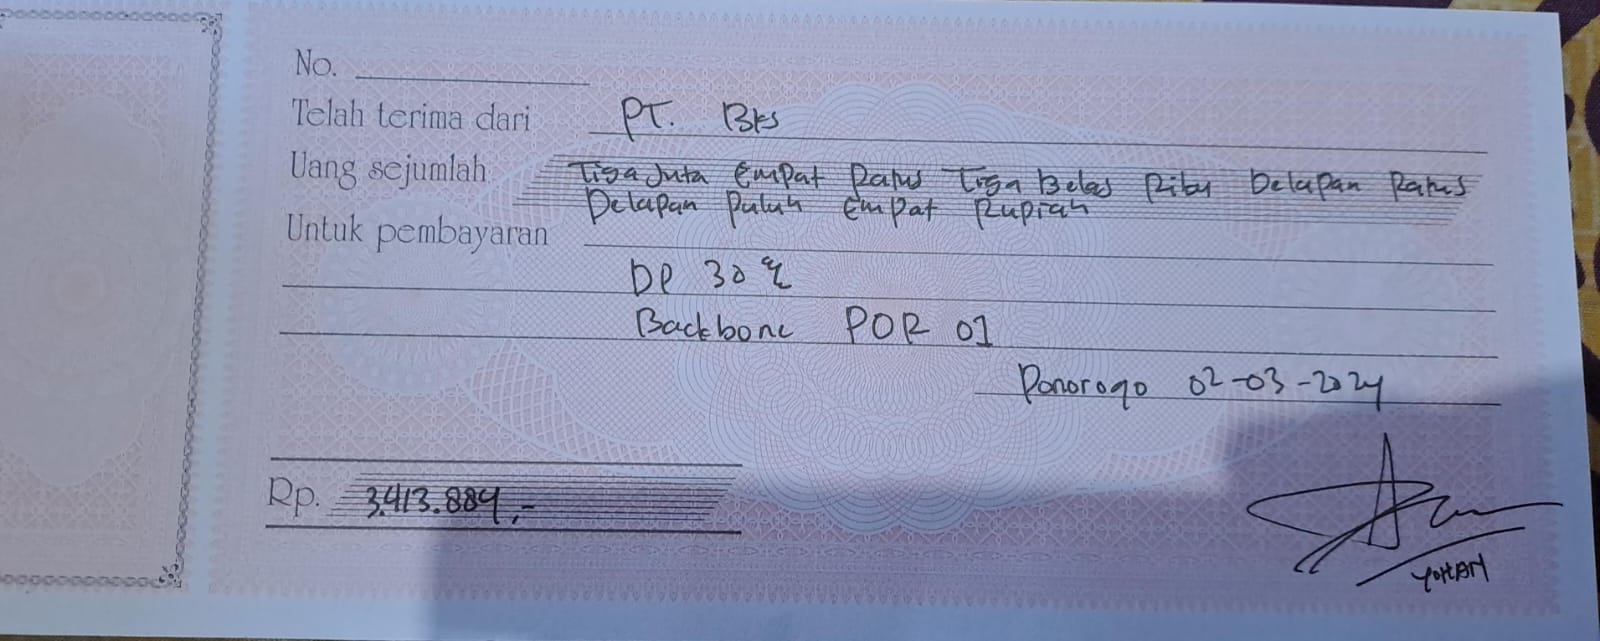 No.
Telah terima dari PT. Bks
Uang sejumlah Tiga Juta Empat Ratus Tiga Belas Ribu Delapan Ratus
Delapan Puluh Empat Rupiah
Untuk pembayaran
DP 30 %
Backbone POR 01
Ponorogo 02-03-2024
Rp. 3.413.884,-
YOHAN